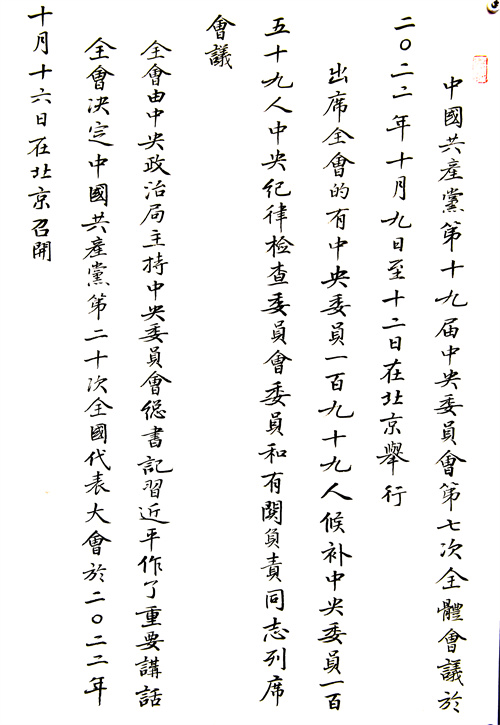 中國共產黨第十九届中央委員會第七次全體會議於
二〇二二年十月九日至十二日在北京舉行
出席全會的有中央委員一百九十九人候补中央委員一百
五十九人中央纪律检查委員會委員和有関負責同志列席
會議
全會由中央政治局主持中央委員會総書記習近平作了重要講話
全會决定中國共產黨第二十次全國代表大會於二〇二二年
十月十六日在北京召開